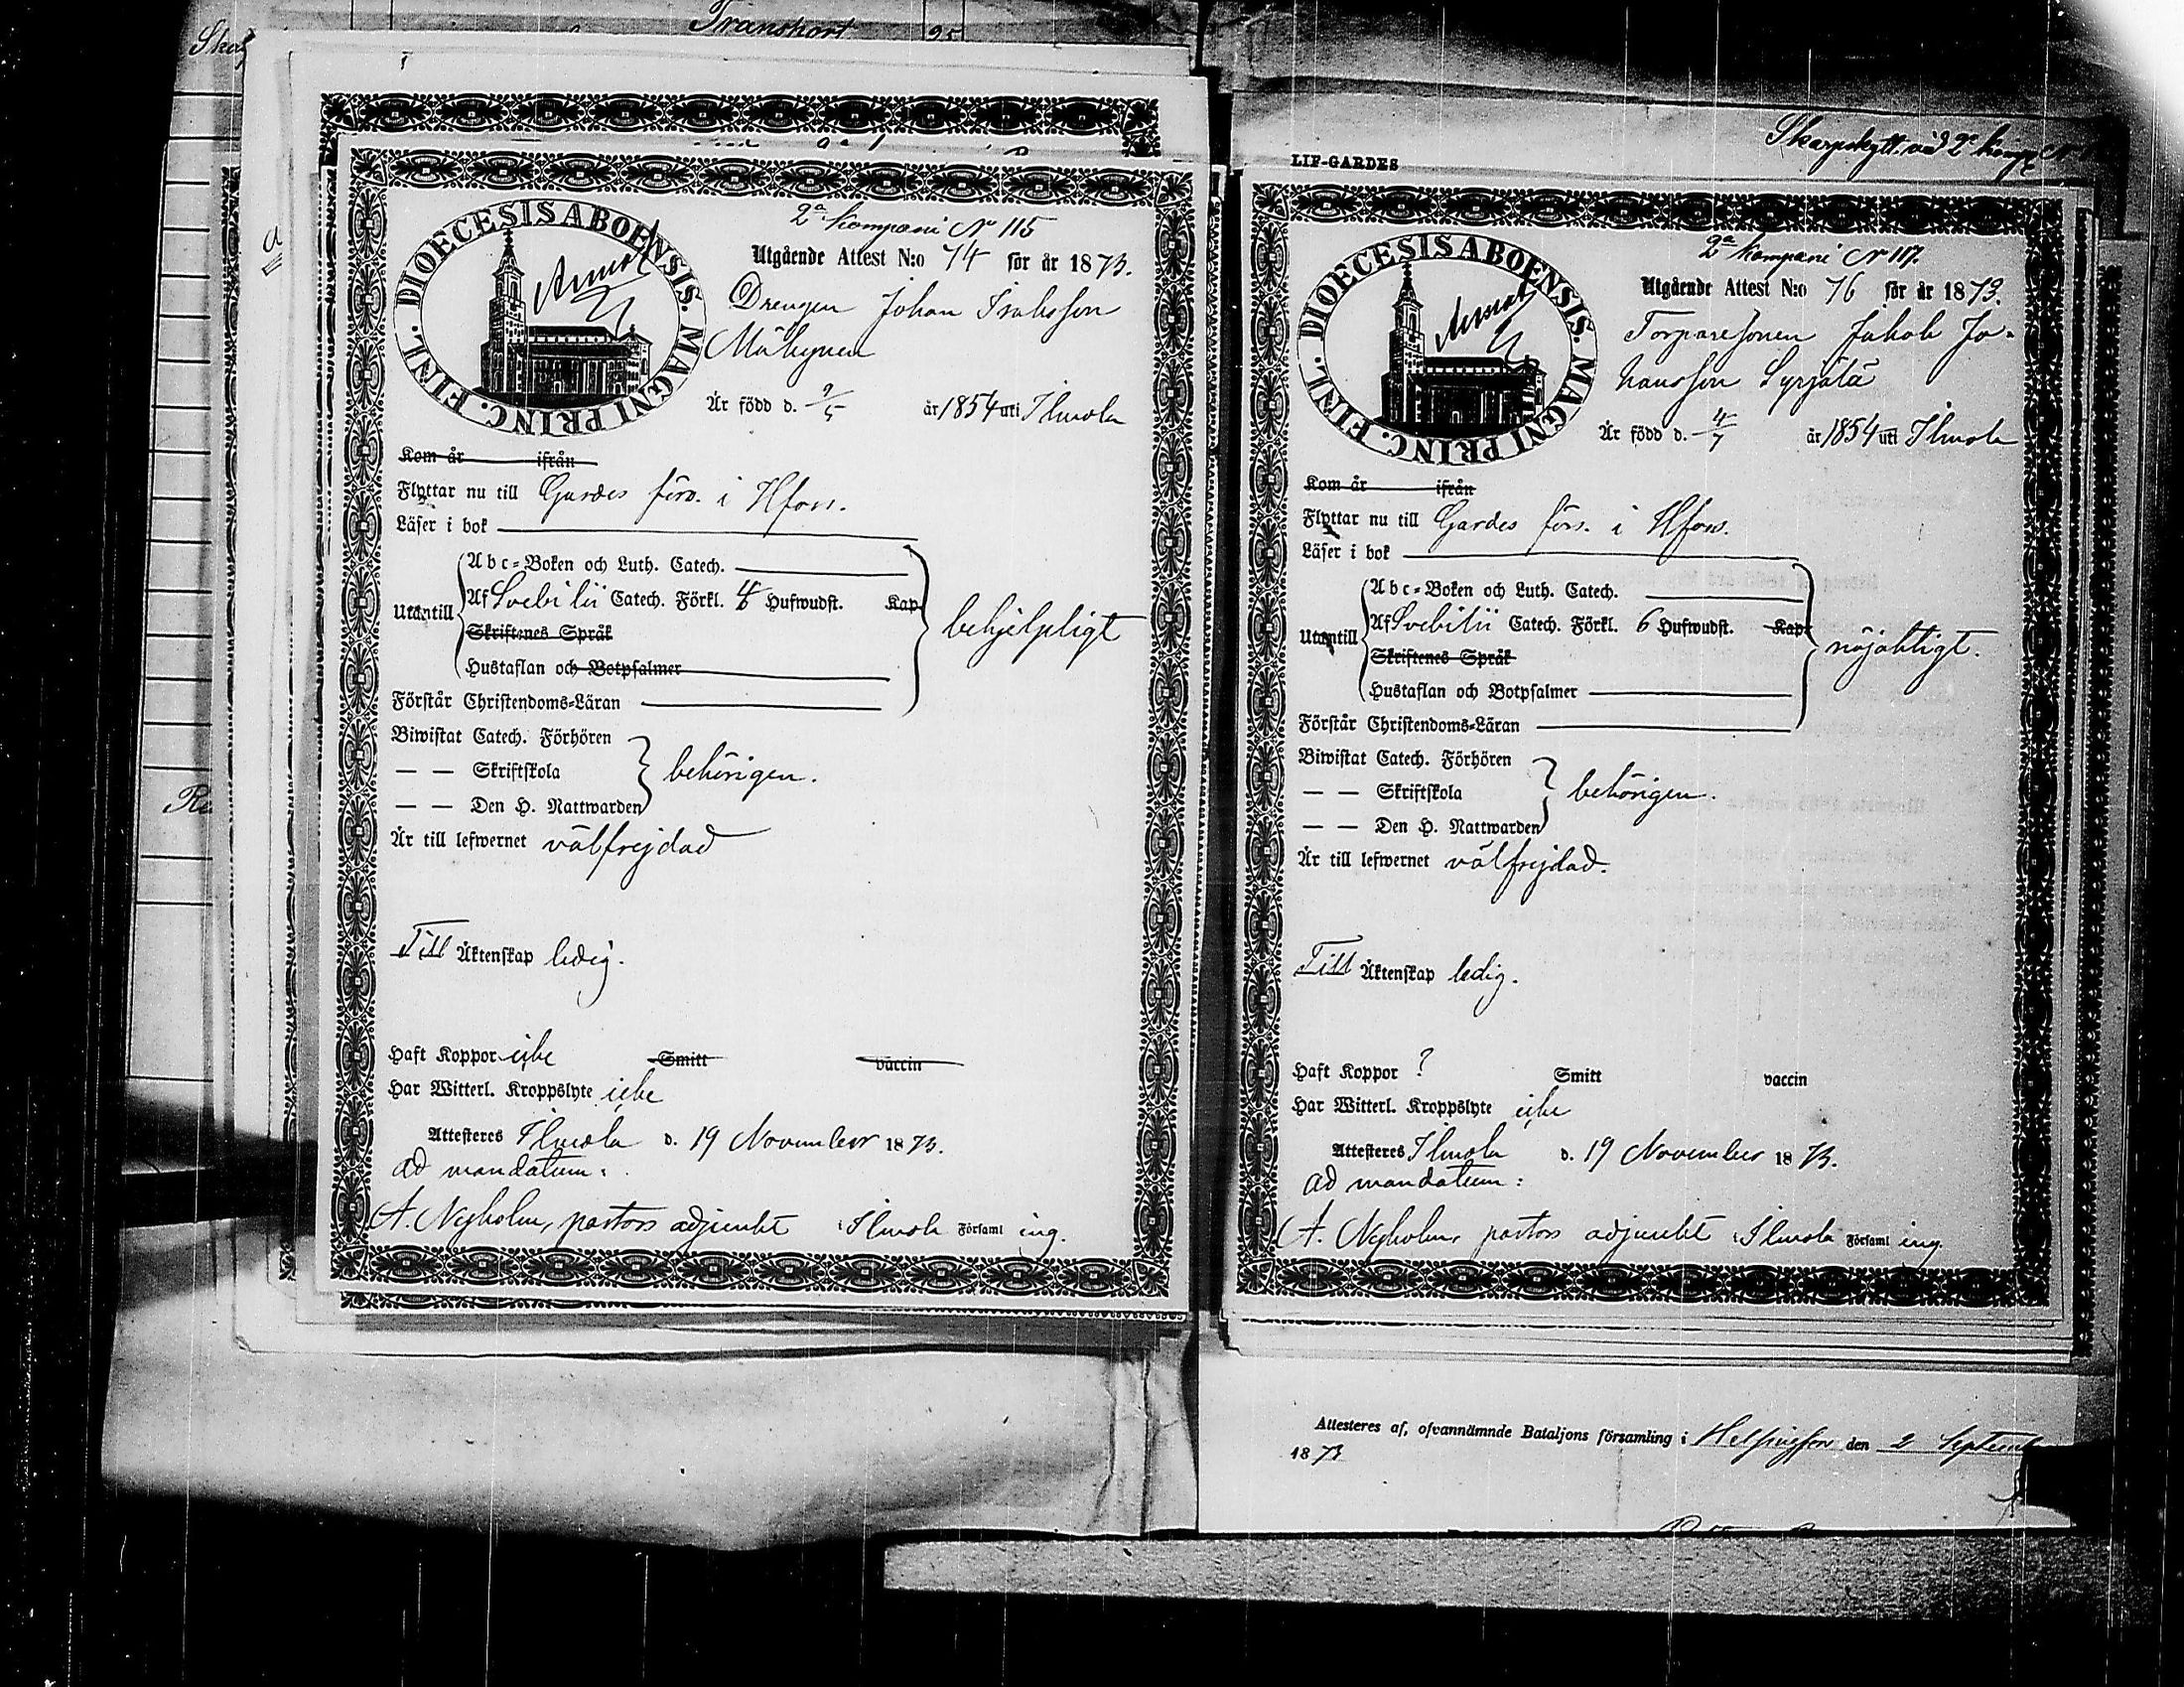 Transport
LIF-GARDES
Skarpskytt. vid 2a komp. No
2a kompani No 115
DIOECESIS ABOENSIS. MAGNI PRINC. FINL.
Utgående Attest N:o 74 för år 1873.
Drengen Johan Isaksson
Är född d. 9/5 år 1854 uti Ilmola
Kom år ifrån
Flyttar nu till Gardes förs. i Hfors.
Läser i bok
Abc-Boken och Luth. Catech.
Utantill Af Svebilii Catech. Förkl. 4 Hufwudst. Kap.
behjelpligt
Skriftenes Språk
Hustaflan och Botpsalmer
Förstår Christendoms-Läran
Biwistat Catech. Förhören
— — Skriftskola behörigen.
— — Den H. Nattwarden
Är till lefwernet välfrejdad
Till Äktenskap ledig.
Haft Koppor icke Smitt vaccin
Har Witterl. Kroppslyte icke
Attesteres Ilmola d. 19 November 1873.
ad mandatum:
A. Nyholm, pastors adjunkt i Ilmola Församl ing.
2a kompani No 117.
DIOECESIS ABOENSIS. MAGNI PRINC. FINL.
Utgående Attest N:o 76 för år 1873.
Torparesonen Jakob Jo-
hansson Syrjälä
Är född d. 4/7 år 1854 uti Ilmola
Kom år ifrån
Flyttar nu till Gardes förs. i Hfors.
Läser i bok
Abc-Boken och Luth. Catech.
Utantill Af Svebilii Catech. Förkl. 6 Hufwudst. Kap.
nöjaktigt.
Skriftenes Språk
Hustaflan och Botpsalmer
Förstår Christendoms-Läran
Biwistat Catech. Förhören
— — Skriftskola behörigen.
— — Den H. Nattwarden
Är till lefwernet välfrejdad.
Till Äktenskap ledig.
Haft Koppor ? Smitt vaccin
Har Witterl. Kroppslyte icke
Attesteres Ilmola d. 19 November 1873.
ad mandatum:
A. Nyholm, pastors adjunkt i Ilmola Församl ing.
Attesteres af, ofvannämnde Bataljons församling i Helsingfors den 2 Septemb
1873